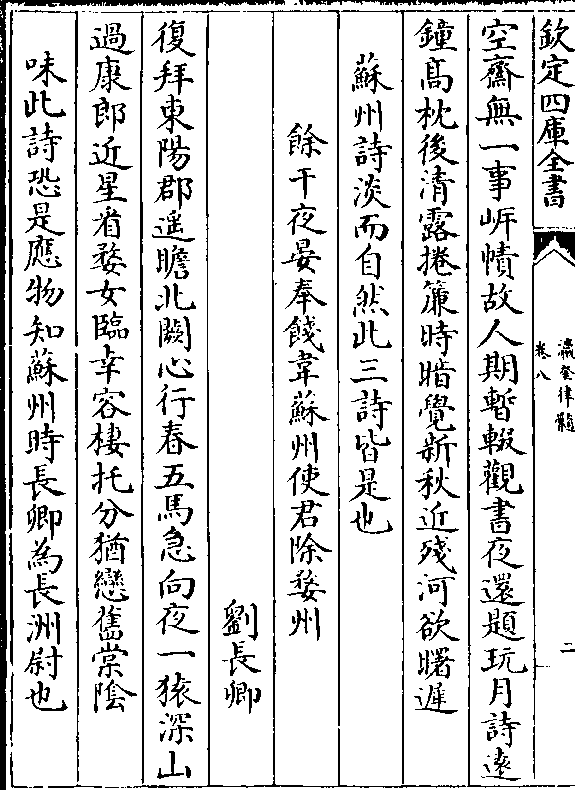 欽定四庫全書
瀛奎律髓
卷八
二
空齋無一事岸幘故人期暫輟觀書夜還題玩月詩逺
鐘髙枕後清露捲簾時暗覺新秋近殘河欲曙遲
蘇州詩淡而自然此三詩皆是也
餘干夜晏奉餞韋蘇州使君除婺州
劉長卿
復拜東陽郡遥瞻北闕心行春五馬急向夜一猿深山
過康郎近星㸔婺女臨幸容棲托分猶戀舊棠陰
味此詩恐是應物知蘇州時長卿為長洲尉也